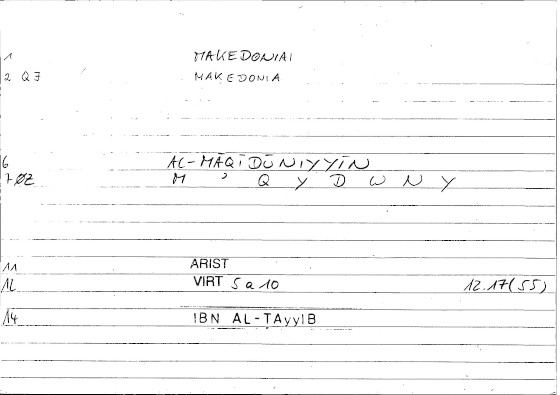 1 MAKEDONIAI
2 QJ MAKEDONIA
6 AL-MĀQĪDŪNIYYĪN
7 ØZ M ʾ Q Y D W N Y
11 ARIST
12 VIRT 5 a 10 12.17(55)
14 IBN AL-TAyyIB